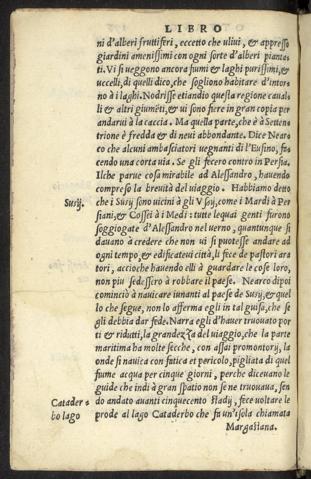 LIBRO
ni d'alberi fruttiferi, eccetto che uliui, & appresso
giardini amenissimi con ogni sorte d'alberi pianta-
ti. Vi si ueggono ancora fiumi & laghi purissimi, &
uccelli, di quelli dico, che sogliono habitare d'intor-
no à i laghi. Nodrisse etiandio questa regione caual-
li & altri giumẽti, & ui sono fiere in gran copia per
andarui à la caccia. Ma quella parte, che è à Setten-
trione è fredda & di neui abbondante. Dice Near-
co che alcuni ambasciatori uegnanti di l'Eusino, fa-
cendo una corta uia. Se gli fecero contro in Persia.
Ilche parue cosa mirabile ad Alessandro, hauendo
compreso la breuità del uiaggio. Habbiamo detto
Surij. che i Surij sono uicini à gli Vsij, come i Mardi à Per
siani, & Cossei à i Medi: tutte lequai genti furono
soggiogate d'Alessandro nel uerno, quantunque si
dauano à credere che non ui si puotesse andare ad
ogni tempo, & edificateui città, li fece de pastori ara
tori, accioche hauendo elli à guardare le cose loro,
non piu sedessero à robbare il paese. Nearco dipoi
cominciò à nauicare iunanti al paese de Surij, & quel
lo che segue, non lo afferma egli in tal guisa, che se
gli debbia dar fede. Narra egli d'hauer truouato por
ti & ridutti, la grandezza del uiaggio, che la parte
maritima ha molte secche, con assai promontorij, la
onde si nauica con fatica et pericolo, pigliata di quel
fiume acqua per cinque giorni, perche diceuano le
guide che indi à gran spatio non se ne truouaua, sen
Catader- do andato auanti cinquecento stadij, fece uoltare le
bo lago prode al lago Cataderbo che fa un'isola chiamata
Margastana.